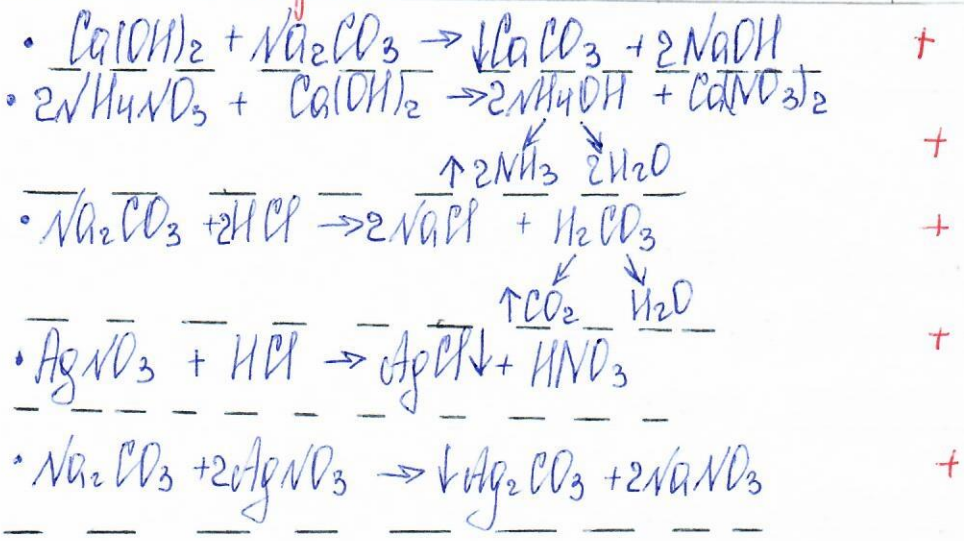 • Ca(OH)₂ + Na₂CO₃ → ↓CaCO₃ + 2NaOH +
• 2NH₄NO₃ + Ca(OH)₂ → 2NH₄OH + Ca(NO₃)₂
+
↑2NH₃ 2H₂O
• Na₂CO₃ + 2HCl → 2NaCl + H₂CO₃ +
↑CO₂ H₂O
• AgNO₃ + HCl → AgCl↓ + HNO₃ +
• Na₂CO₃ + 2AgNO₃ → ↓Ag₂CO₃ + 2NaNO₃ +